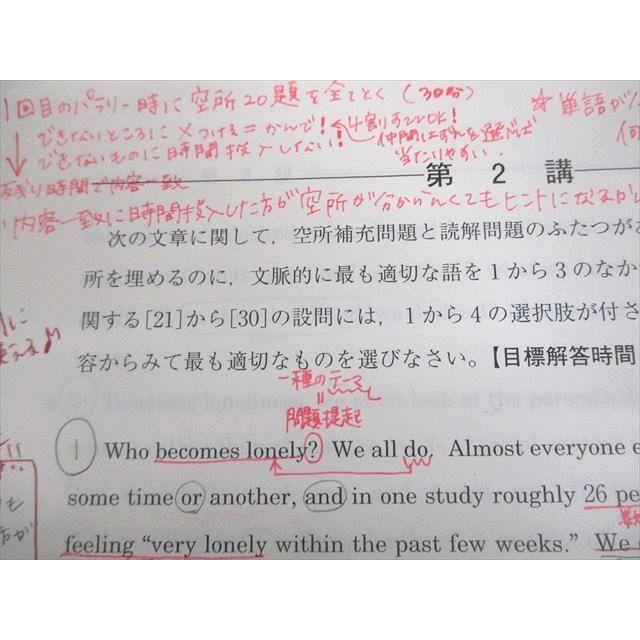 1回目のパラリー時に空所20題を全てとく (30分)
☆単語が
できないところに×つける=かんで! ←4割りすてOK!
できないものに時間投入しない!
仲間はずれを選べば
当たりやすい
残り時間で内容一致
第 2 講
内容一致に日時間投入した方が空所が分かんなくてもヒントになるから
次の文章に関して,空所補充問題と読解問題のふたつがあ
所を埋めるのに,文脈的に最も適切な語を1から3のなか
関する[21]から[30]の設問には,1から4の選択肢が付さ
容からみて最も適切なものを選びなさい。【目標解答時間
一種のテーマ
問題提起
1 Who becomes lonely? We all do. Almost everyone e
some time or another, and in one study roughly 26 pe
数
feeling “very lonely within the past few weeks.” We